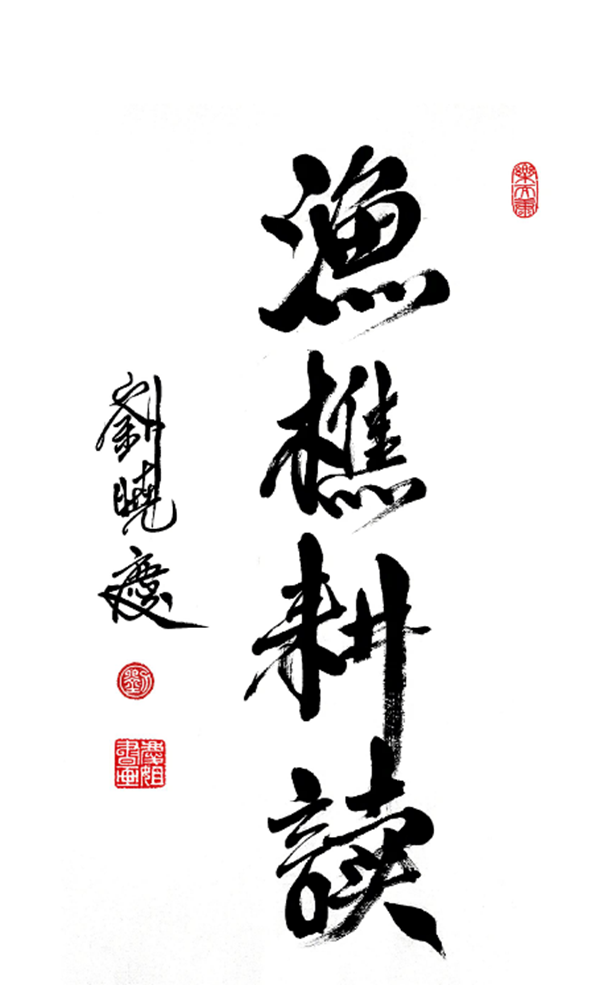 漁樵耕讀
劉曉慶
劉
慶姐書畫